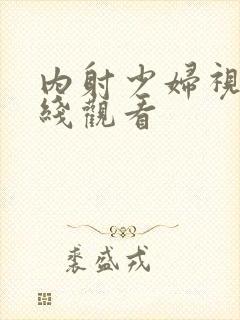 內射少婦視
綫觀看
裘盛戎